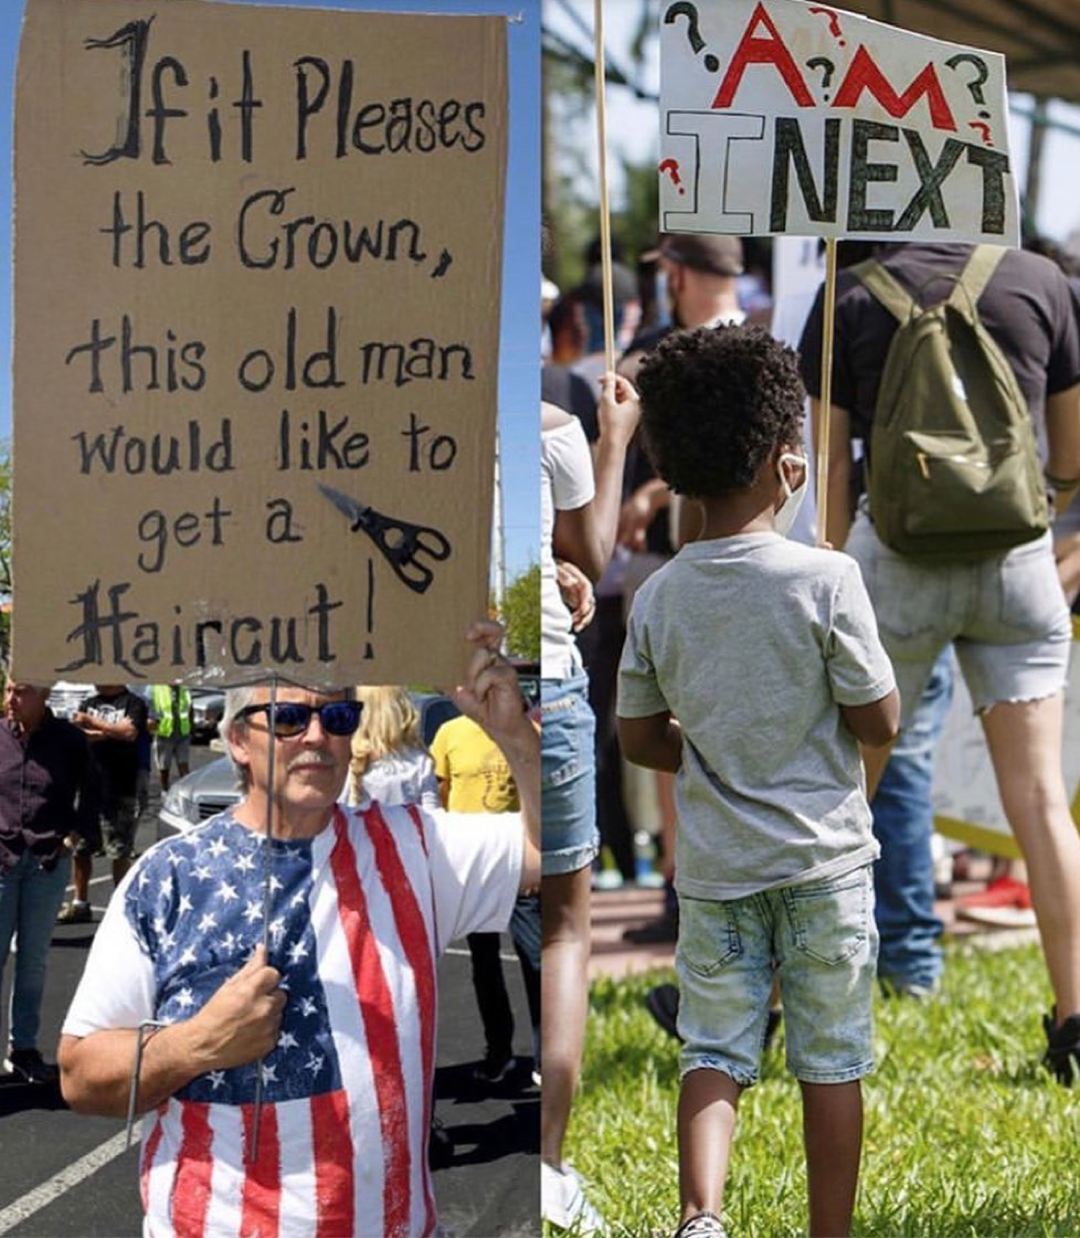 If it Pleases
the Crown,
this old man
would like to
get a
Haircut!
? AM ? ? ?
? I NEXT ?